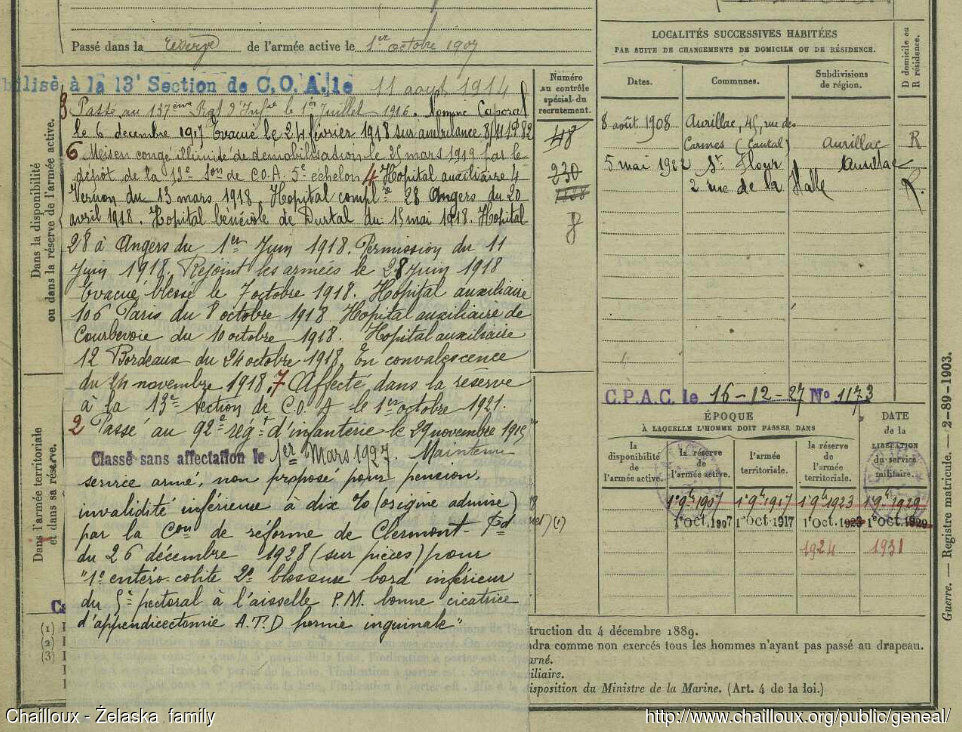 Passé dans la réserve de l'armée active le 1er octobre 1907
bilisé à la 13e Section de C.O.A. le 11 aout 1914
3 Passé au 137ème Rég d'Infie le 1er Juillet 1916. Nommé Caporal
le 6 décembre 1917 Evacué le 24 février 1918 sur ambulance
6 Mis en congé illimité de démobilisation le 25 mars 1919 par le
dépôt de la 13e Son de C.O.A. 5e échelon 4 Hopital auxiliaire 4
Vernon du 13 mars 1918 Hopital complre 28 Angers du 20
avril 1918. Hopital bénévole de Durtal du 15 mai 1918. Hopital
28 à Angers du 1er Juin 1918. Permission du 11
Juin 1918. Rejoint les armées le 28 Juin 1918
Evacué blessé le 7 octobre 1918. Hopital auxiliaire
106 Paris du 8 octobre 1918 Hopital auxiliaire de
Courbevoie du 10 octobre 1918. Hopital auxiliaire
12 Bordeaux du 24 octobre 1918. En convalescence
du 24 novembre 1918. 7 Affecté dans la réserve
à la 13e section de C.O.A le 1er octobre 1921.
2 Passé au 92e régt d'infanterie le 29 novembre 1915
Classé sans affectation le 1er Mars 1927. Maintenu
service armé, non proposé pour pension,
invalidité inférieure à dix % (origine admise)
par la Con de réforme de Clermont Fd
du 26 décembre 1928 (sur pièces) pour
"1° entéro-colite 2° blessure bord inférieur
du gd pectoral à l'aisselle P.M. bonne cicatrice
d'appendicectomie A.T.D hernie inguinale"
Dans la disponibilité
ou dans la réserve de l'armée active.
Dans l'armée territoriale
et dans sa réserve.
(1)
(2)
(3)
Numéro
au contrôle
spécial du
recrutement.
48
230
8
LOCALITÉS SUCCESSIVES HABITÉES
PAR SUITE DE CHANGEMENTS DE DOMICILE OU DE RÉSIDENCE.
Dates. Communes. Subdivisions
de région.
D domicile ou
R résidence.
8 août 1908 Aurillac, 45, rue des
Carmes (Cantal) Aurillac R
5 mai 1922 St Flour Aurillac R.
2 rue de la Halle
C.P.A.C. le 16-12-27 No 1173
ÉPOQUE
À LAQUELLE L'HOMME DOIT PASSER DANS
DATE
de la
LIBÉRATION
du service
militaire.
la
disponibilité
de l'armée active.
la réserve
de
l'armée active.
l'armée
territoriale.
la réserve
de
l'armée
territoriale.
1er 9bre 1907 1er 9bre 1917 1er 9bre 1923 1er 9bre 1929
1er Oct. 1907 1er Oct. 1917 1er Oct. 1923 1er Oct. 1929
1924 1931
Guerre. — Registre matricule. — 2-89-1903.
(1)
truction du 4 décembre 1889.
ndra comme non exercés tous les hommes n'ayant pas passé au drapeau.
arné.
iliaires.
isposition du Ministre de la Marine. (Art. 4 de la loi.)
Chailloux - Żelaska family
http://www.chailloux.org/public/geneal/